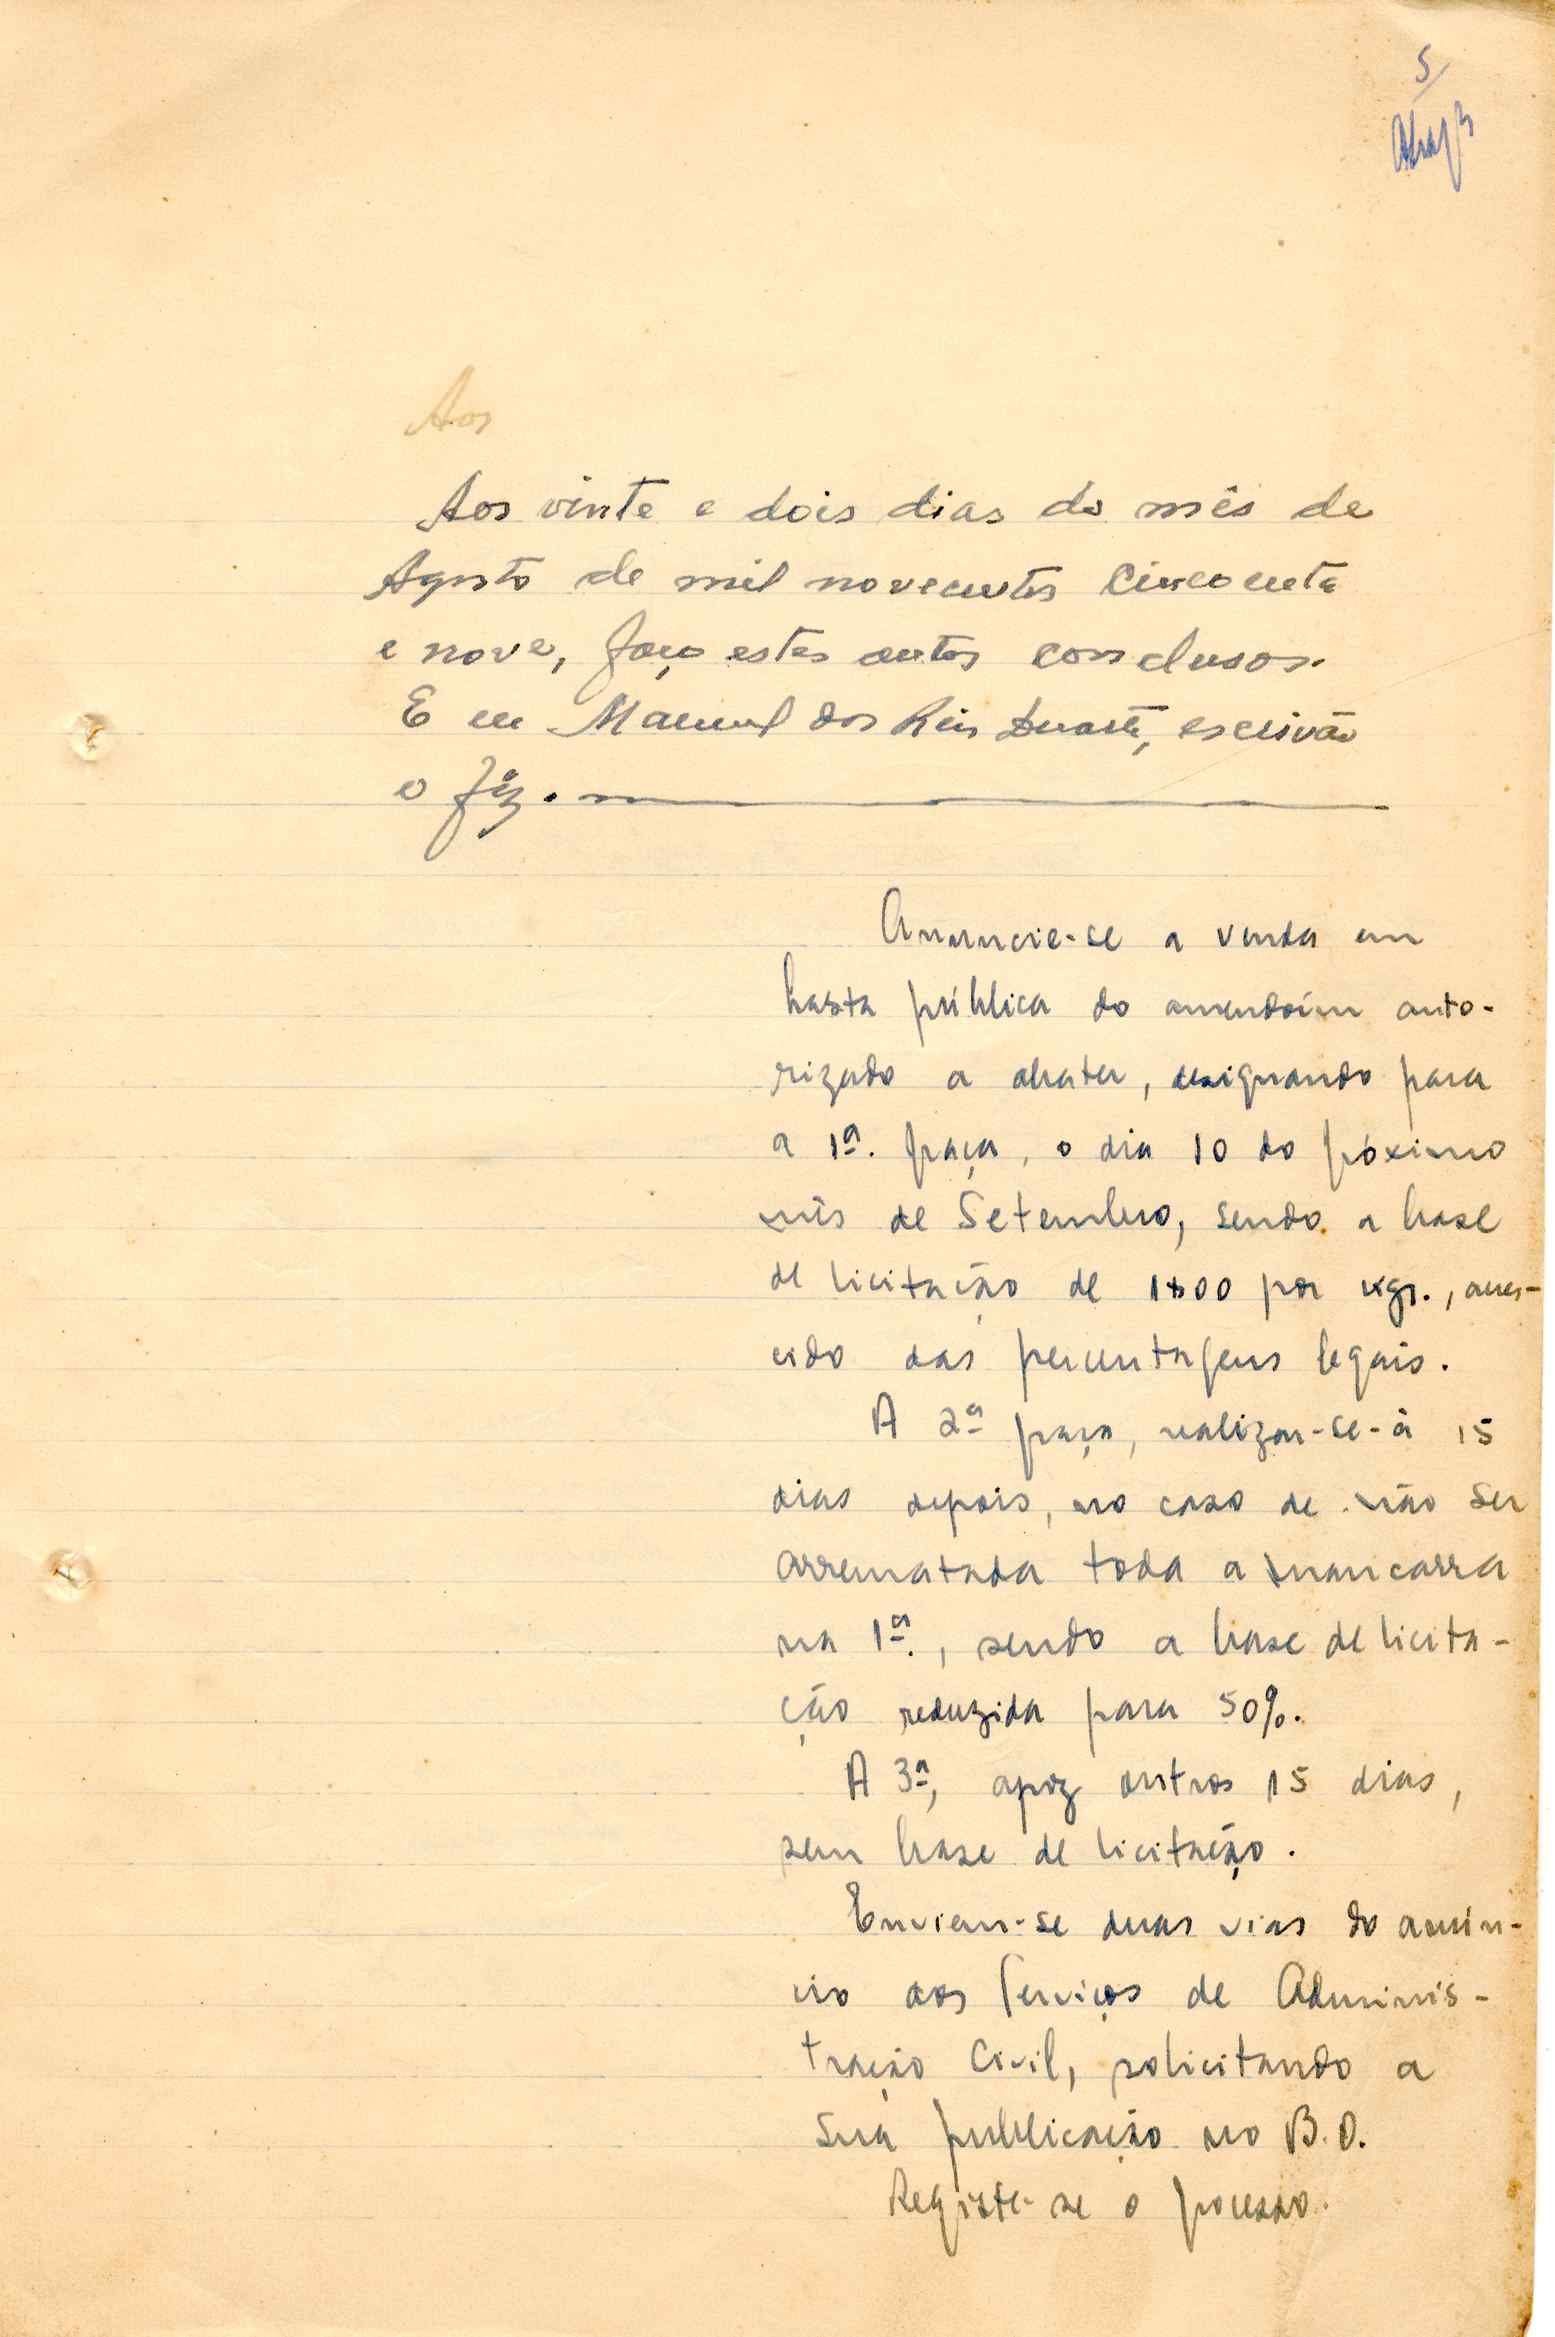 5
Aos
Aos vinte e dois dias do mês de
Agosto de mil novecentos cincoenta
e nove, faço estes autos conclusos.
E eu Manuel dos Reis Duarte, escrivão
o fiz.
Anuncie-se a venda em
hasta pública do amendoím auto-
rizado a abater, designando para
a 1ª. praça, o dia 10 do próximo
mês de Setembro, sendo a base
de licitação de 1$00 por kgr., acres-
cido das percentagens legais.
A 2ª praça, realizar-se-á 15
dias depois, no caso de não ser
arrematada toda a mancarra
na 1ª., sendo a base de licita-
ção reduzida para 50%.
A 3ª, apoz outros 15 dias,
sem base de licitação.
Enviem-se duas vias do anún-
cio aos Serviços de Adminis-
tração Civil, solicitando a
sua publicação no B.O.
Registe-se o processo.